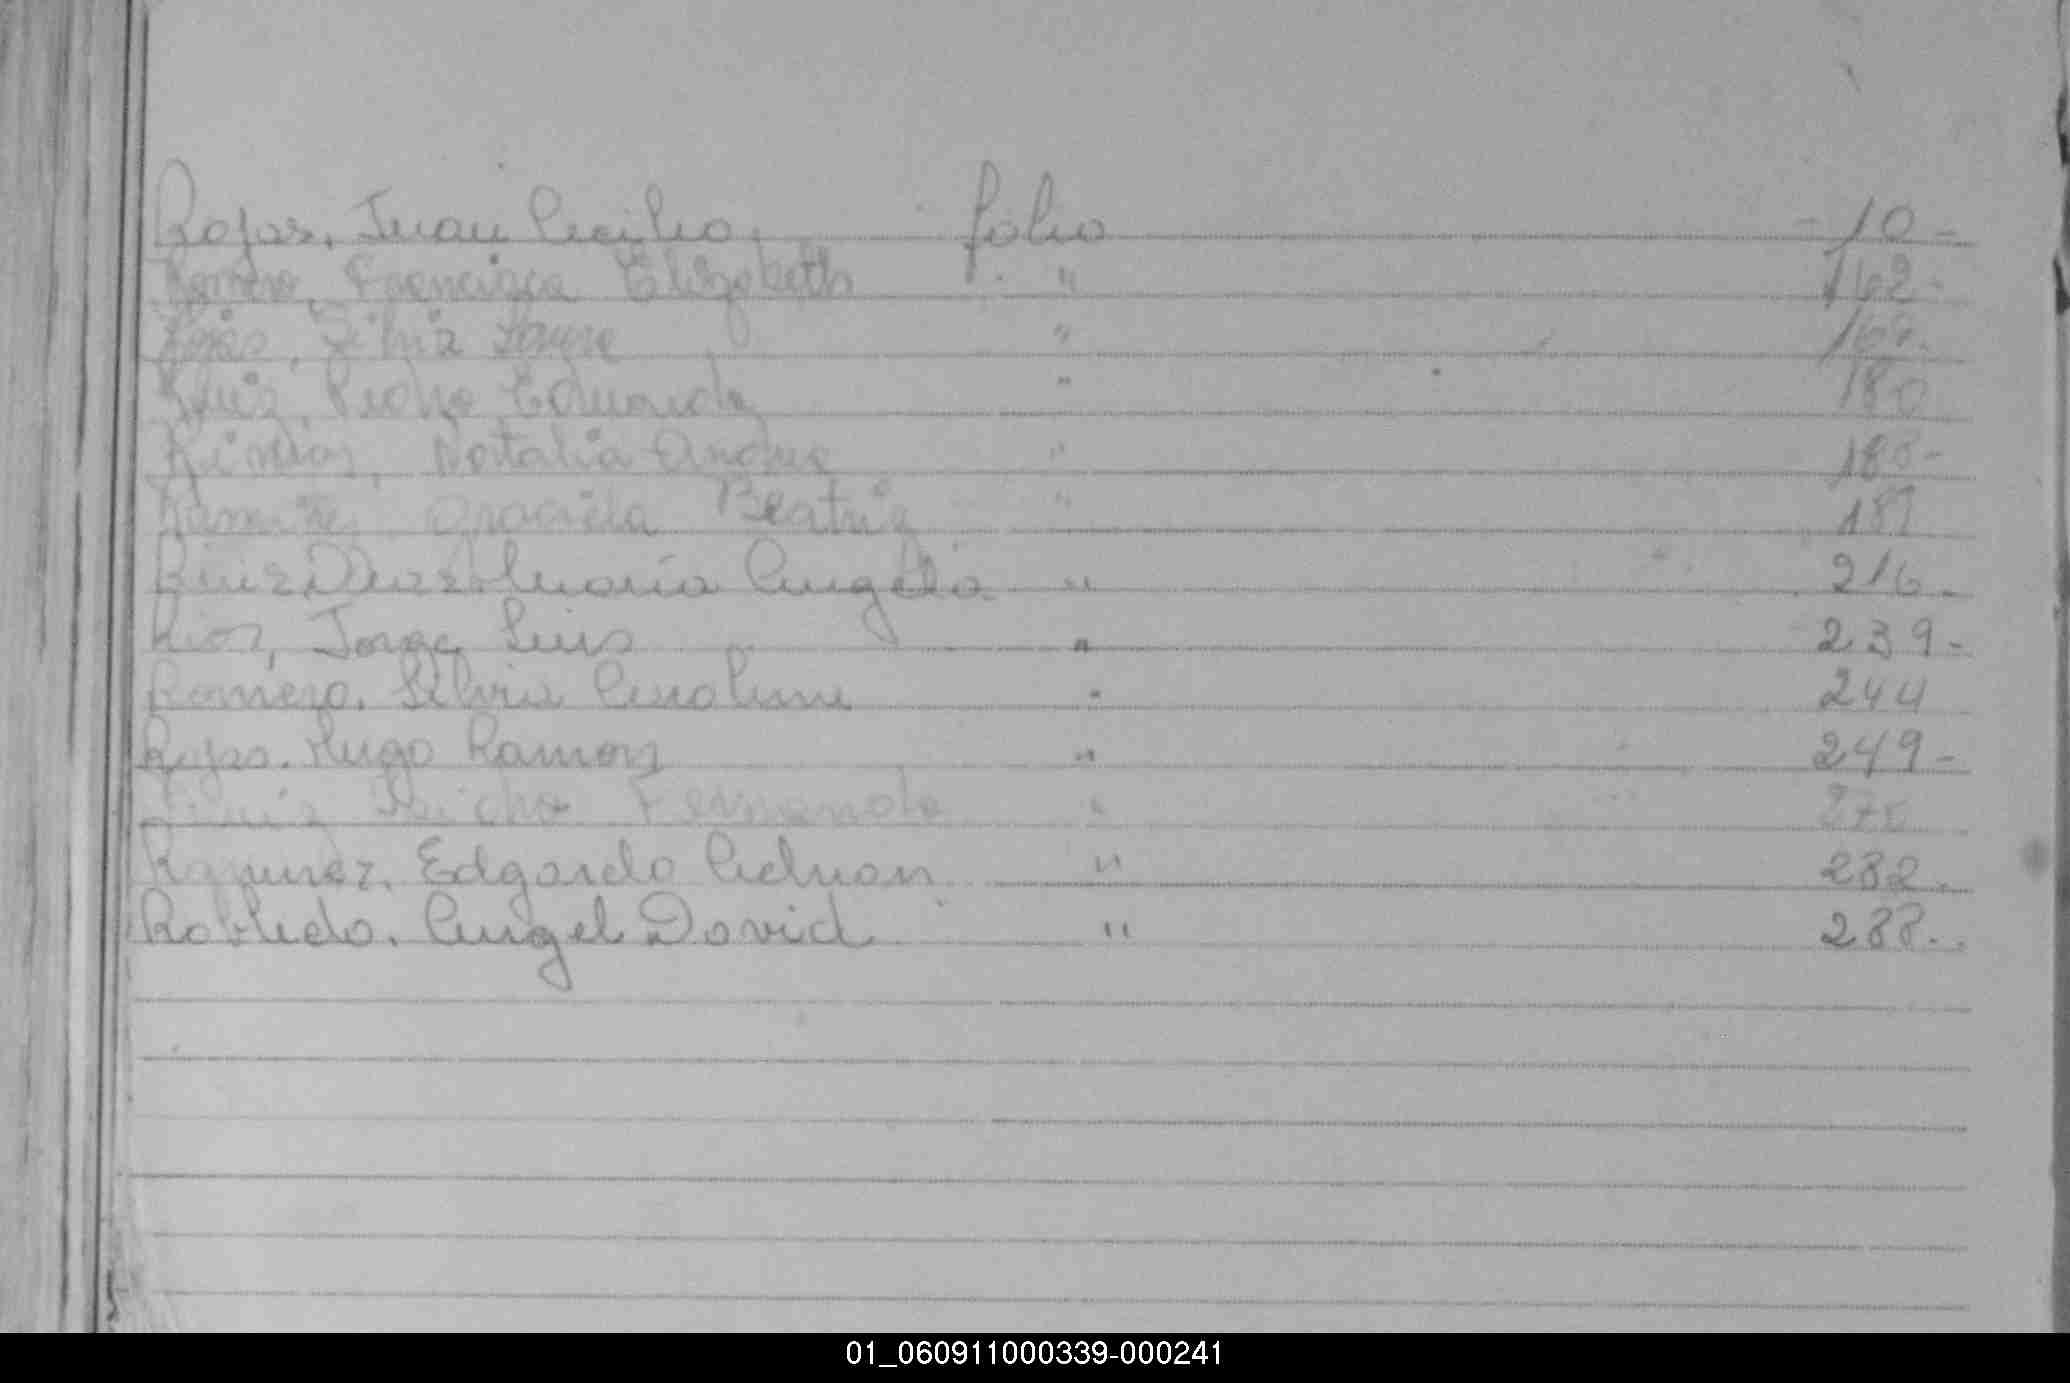 Rojas, Juan Cecilio, folio - 10 -
Romero, Francisca Elizabeth " 162 -
Rojas, Silvia " 169.
Ruiz, Pedro Eduardo " 180
Natalia " 185 -
Ramirez, Graciela Beatriz " 189
Ruiz Diaz Maria Angela " 216 -
Rios, Jorge Luis " 239 -
Romero, Silvia Carolina " 244
Rojas. Hugo Ramon " 249 -
Fernando "
Ramirez, Edgardo Adrian " 282.
Robledo. Angel David " 288 -
01_060911000339-000241